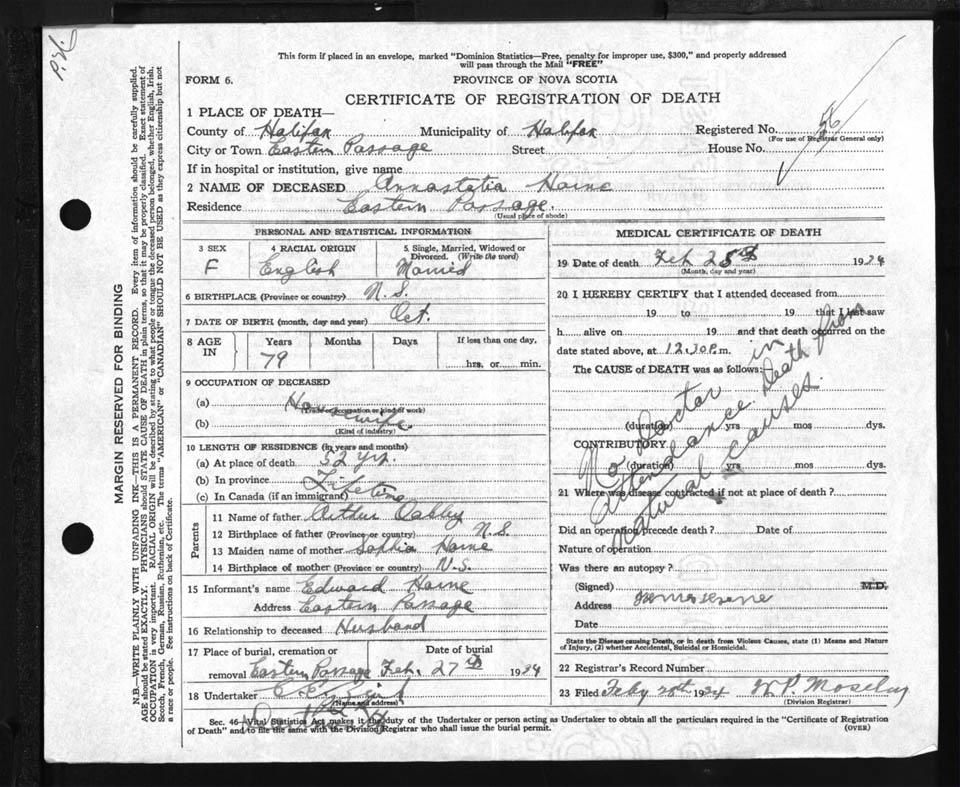 P.H.
This form if placed in an envelope, marked "Dominion Statistics—Free, penalty for improper use, $300," and properly addressed
will pass through the Mail "FREE"
FORM 6.
PROVINCE OF NOVA SCOTIA
CERTIFICATE OF REGISTRATION OF DEATH
1 PLACE OF DEATH—
County of Halifax Municipality of Halifax Registered No.
(For use of Registrar General only)
City or Town Eastern Passage Street House No.
If in hospital or institution, give name
2 NAME OF DECEASED Annastatia Horne
Residence Eastern Passage.
(Usual place of abode)
PERSONAL AND STATISTICAL INFORMATION
3 SEX 4 RACIAL ORIGIN 5 Single, Married, Widowed or
Divorced. (Write the word)
F English Married
6 BIRTHPLACE (Province or country) N.S.
7 DATE OF BIRTH (month, day and year) Oct.
8 AGE IN Years Months Days If less than one day,
79 hrs. or min.
9 OCCUPATION OF DECEASED
(a) Housewife
(Trade, occupation or kind of work)
(b)
(Kind of industry)
10 LENGTH OF RESIDENCE (in years and months)
(a) At place of death 52 yrs.
(b) In province Lifetime
(c) In Canada (if an immigrant)
Parents
11 Name of father Arthur
12 Birthplace of father (Province or country) N.S.
13 Maiden name of mother Sophia Horne
14 Birthplace of mother (Province or country) N.S.
15 Informant's name Edward Horne
Address Eastern Passage
16 Relationship to deceased Husband
17 Place of burial, cremation or Date of burial
removal Eastern Passage Feb. 27th 1934
18 Undertaker
(Name and address)
Dartmouth
MEDICAL CERTIFICATE OF DEATH
19 Date of death Feb 25th 1934
(Month, day and year)
20 I HEREBY CERTIFY that I attended deceased from
19 to 19 that I last saw
h alive on 19 and that death occurred on the
date stated above, at 12.30 P. m.
The CAUSE of DEATH was as follows:—
No Doctor in
attendance. Death from
natural causes.
(duration) yrs mos dys.
CONTRIBUTORY
(duration) yrs mos dys.
21 Where was disease contracted if not at place of death?
Did an operation precede death? Date of
Nature of operation
Was there an autopsy?
(Signed) M.D.
Address
Date
State the Disease causing Death, or in death from Violent Causes, state (1) Means and Nature
of Injury, (2) whether Accidental, Suicidal or Homicidal.
22 Registrar's Record Number
23 Filed Feby 28th 1934 H P. Moseley
(Division Registrar)
Sec. 46—Vital Statistics Act makes it the duty of the Undertaker or person acting as Undertaker to obtain all the particulars required in the "Certificate of Registration
of Death" and to file the same with the Division Registrar who shall issue the burial permit. (OVER)
MARGIN RESERVED FOR BINDING
N.B.—WRITE PLAINLY WITH UNFADING INK—THIS IS A PERMANENT RECORD. Every item of information should be carefully supplied.
AGE should be stated EXACTLY. PHYSICIANS should STATE CAUSE OF DEATH in plain terms, so that it may be properly classified. Exact statement of
OCCUPATION is very important. RACIAL ORIGIN will be described by stating to what people or tongue the deceased person belonged, whether English, Irish,
Scotch, French, German, Russian, Ruthenian, etc. The terms "AMERICAN" or "CANADIAN" SHOULD NOT BE USED as they express citizenship but not
a race or people. See instructions on back of Certificate.